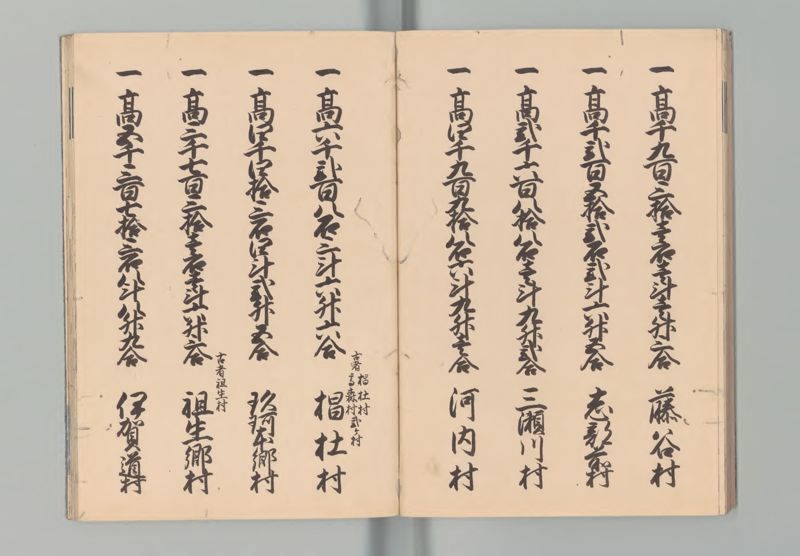 一 高千九百三拾壱石壱斗壱升三合 藤谷村
一 高千弐百五拾弐石弐斗六升五合 志
一 高弐千六百八拾八石壱斗九升弐合 三瀬川村
一 高四千九百九拾八石六斗九升壱合 河内村
一 高六千弐百八石三斗六升六合 椙杜村
古者 椙杜村 高森村 弐ヶ村
一 高四千四拾三石四斗弐升五合 玖珂本郷村
一 高三千七百三拾壱石壱斗六升三合 祖生郷村
古者祖生村
一 高五千三百七拾三石八斗八升九合 伊賀道村